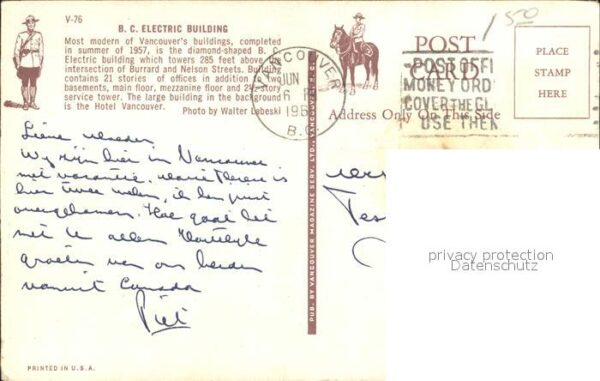 V-76
B. C. ELECTRIC BUILDING
Most modern of Vancouver's buildings, completed
in summer of 1957, is the diamond-shaped B. C.
Electric building which towers 285 feet above the
intersection of Burrard and Nelson Streets. Building
contains 21 stories of offices in addition to two
basements, main floor, mezzanine floor and 2½-story
service tower. The large building in the background
is the Hotel Vancouver.
Photo by Walter Labeski
VANCOUVER
JUN
6 P
195
B.C.
POST
CARD
Address Only On This Side
POST OFFI
MONEY ORD
COVER THE GL
USE THEM
1.50
PLACE
STAMP
HERE
Lieve
Wij zijn hier in Vancouver
met vacantie, is
hier twee weken, ik ben juist
overgekomen. Hoe gaat het
met U allen Hartelijke
groeten van ons beiden
vanuit Canada
Piet
PUB. BY VANCOUVER MAGAZINE SERV. LTD., VANCOUVER, B.C.
privacy protection
Datenschutz
PRINTED IN U.S.A.